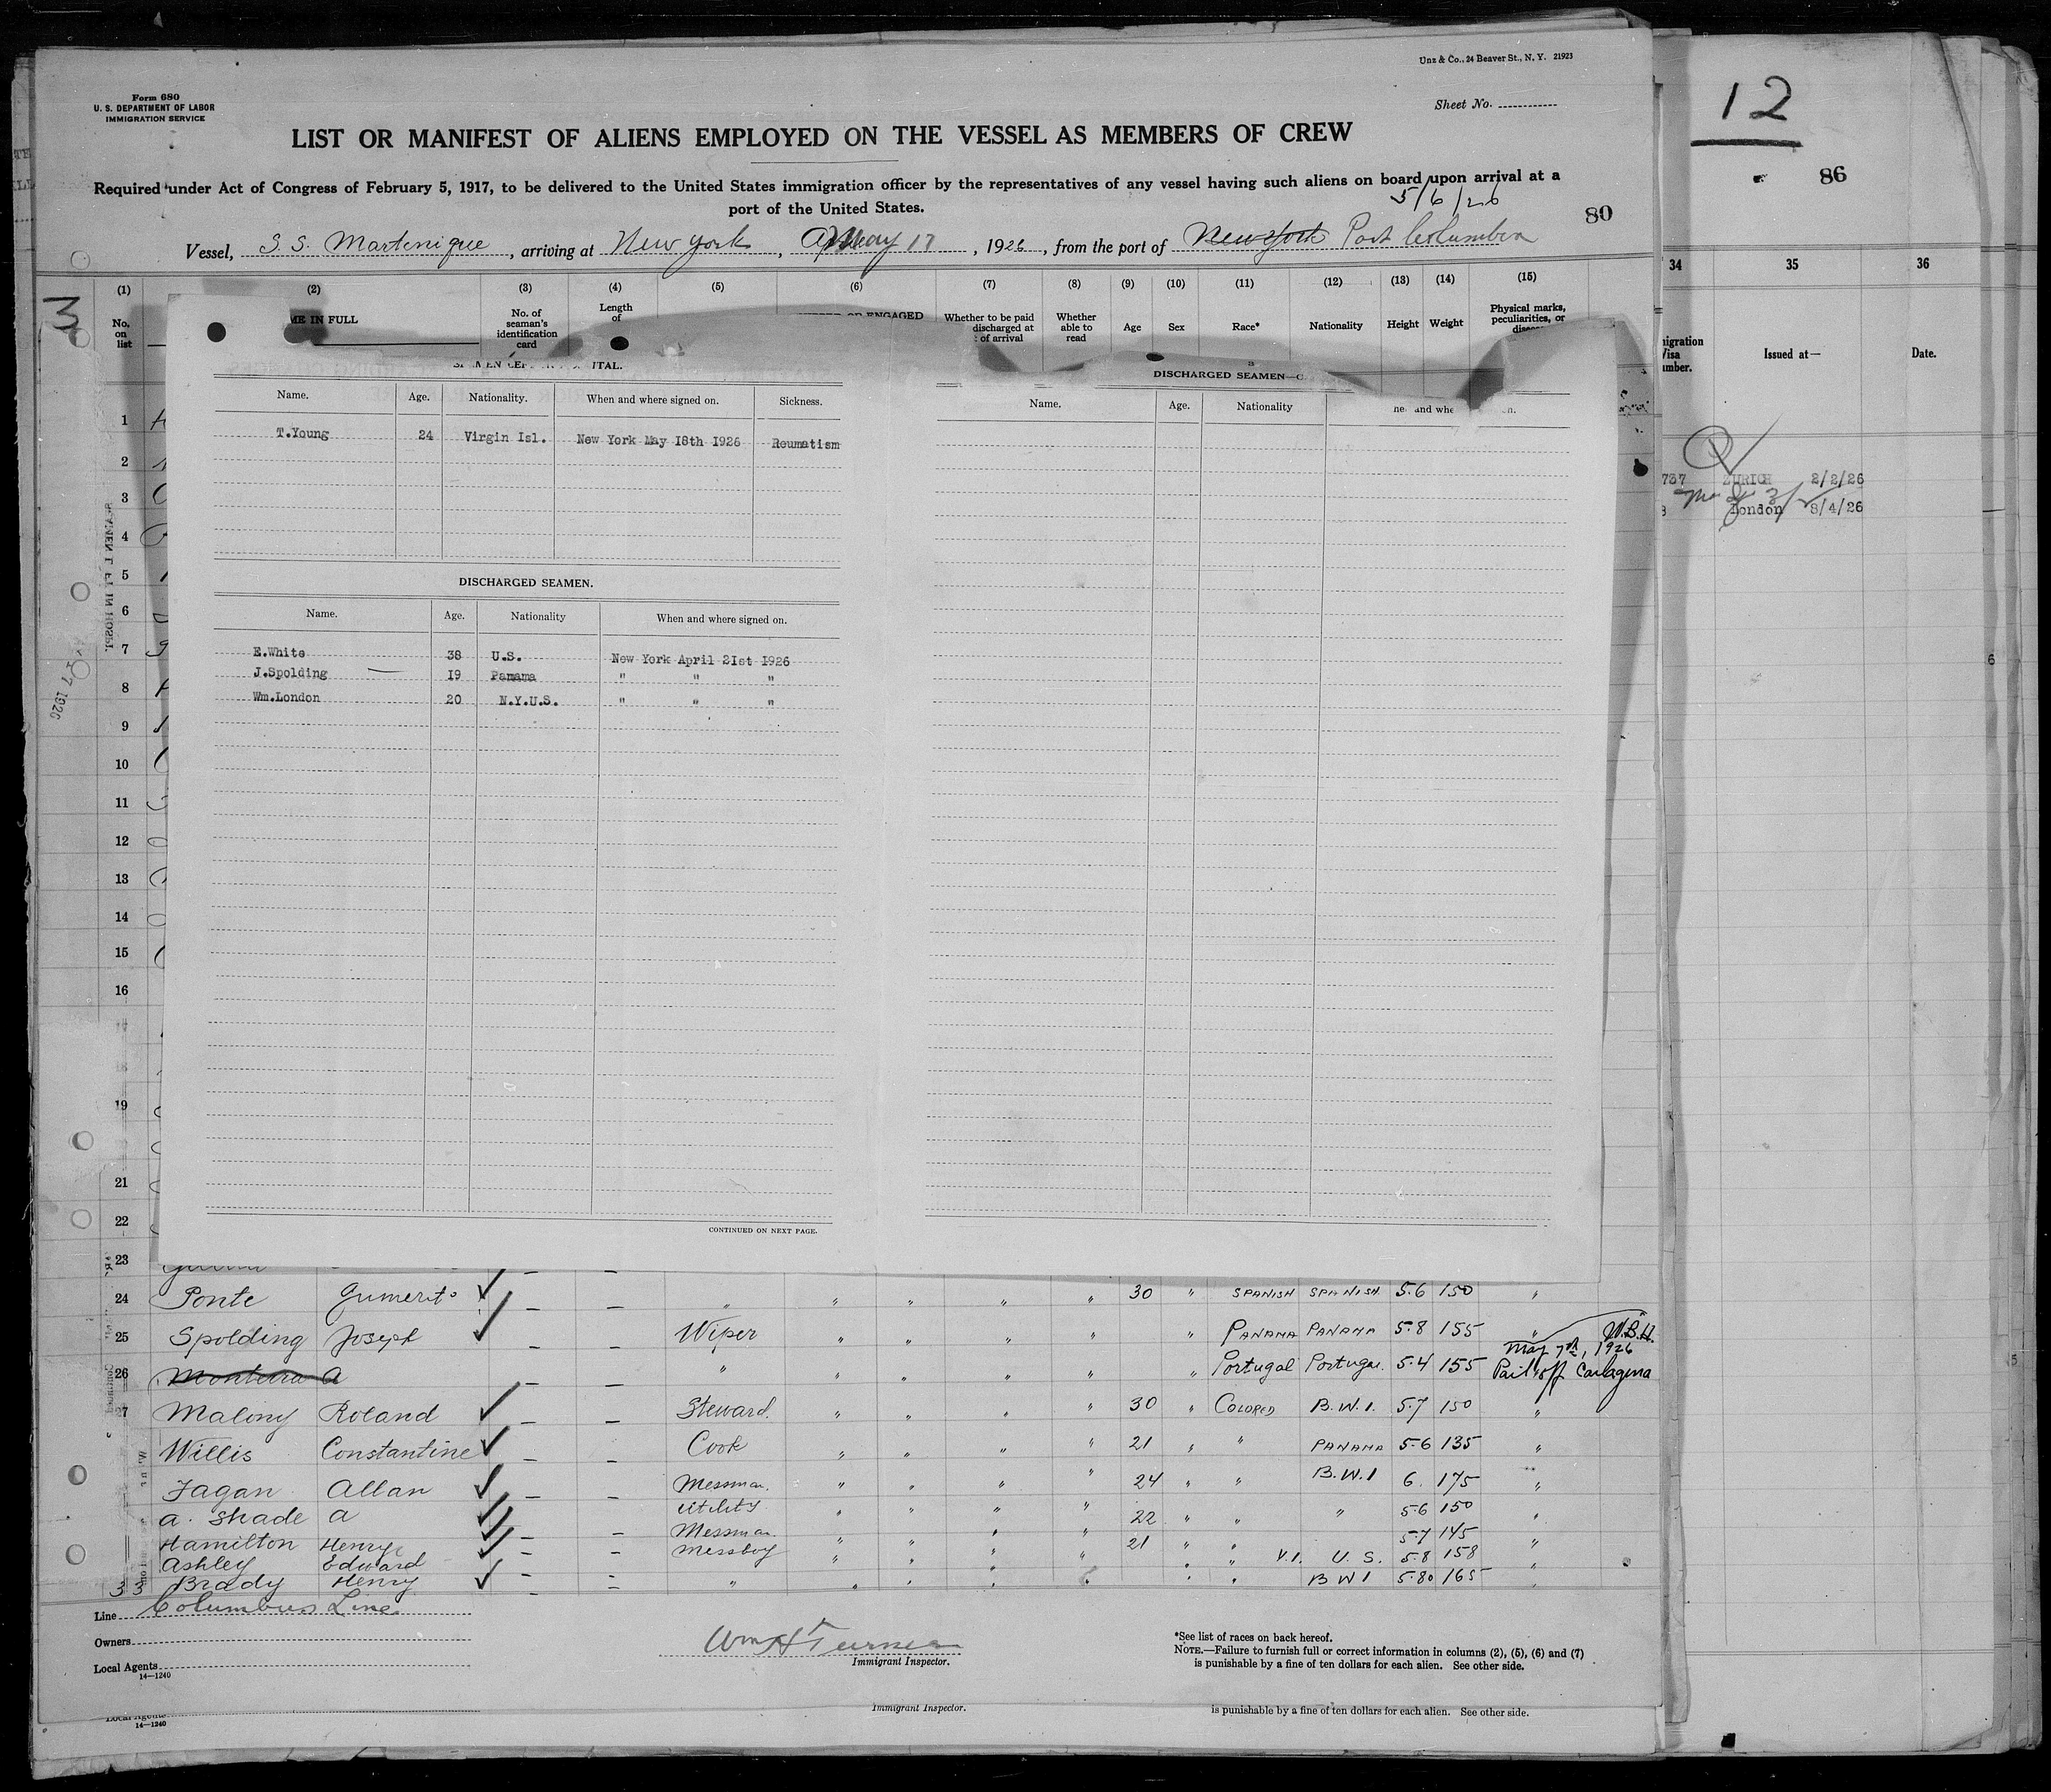 Unz & Co., 24 Beaver St., N. Y. 21923
Form 680
U. S. DEPARTMENT OF LABOR
IMMIGRATION SERVICE
Sheet No.
12
LIST OR MANIFEST OF ALIENS EMPLOYED ON THE VESSEL AS MEMBERS OF CREW
86
Required under Act of Congress of February 5, 1917, to be delivered to the United States immigration officer by the representatives of any vessel having such aliens on board upon arrival at a
port of the United States.
5/6/26
80
Vessel, S.S. Martinique, arriving at New York, May 17, 1926, from the port of New York Port Columbia
3
(1) (2) (3) (4) (5) (6) (7) (8) (9) (10) (11) (12) (13) (14) (15)
34 35 36
No. on list
ME IN FULL
No. of seaman's identification card
Length of
OR ENGAGED
Whether to be paid discharged at of arrival
Whether able to read
Age Sex Race* Nationality Height Weight
Physical marks, peculiarities, or
Issued at— Date.
DISCHARGED SEAMEN—
Name. Age. Nationality. When and where signed on. Sickness.
Name. Age. Nationality
T.Young 24 Virgin Isl. New York May 18th 1926 Reumatism
737 ZURICH 2/2/26
London 8/4/26
DISCHARGED SEAMEN.
Name. Age. Nationality When and where signed on.
E.White 38 U.S. New York April 21st 1926
J.Spolding 19 Panama " " "
Wm.London 20 N.Y.U.S. " " "
1
2
3
4
5
6
7
8
9
10
11
12
13
14
15
16
19
21
22
CONTINUED ON NEXT PAGE.
23
24 Ponte Gumerito ✓ — — " " " " " 30 " SPANISH SPANISH 5.6 150 "
25 Spolding Joseph ✓ — — Wiper " " " " " PANAMA PANAMA 5.8 155 " W.B.H.
May 7th, 1926
26 Monteira A — — " " " " " " Portugal Portugal 5.4 155 Paid off Cartagena
27 Malony Roland ✓ — — Steward. " " " " 30 " COLORED B.W.I. 5.7 150 "
Willis Constantine ✓ — — Cook " " " " 21 " " PANAMA 5.6 135 "
Fagan Allan ✓ — — Messman. " " " " 24 " " B.W.I 6. 175 "
a. Shade a ✓ Utility " " " " 22 " " " 5.6 150 "
Hamilton Henry ✓ — — Messman. " " " " 21 " " 5.7 145 "
Ashley Edward ✓ — — Messboy " " " " " " V.I. U.S. 5.8 158 "
33 Brady Henry ✓ — — " " " " " " " B W I 5.80 165 "
Line Columbus Line
Owners
Local Agents
14—1240
Wm H Turner
Immigrant Inspector.
*See list of races on back hereof.
NOTE.—Failure to furnish full or correct information in columns (2), (5), (6) and (7)
is punishable by a fine of ten dollars for each alien. See other side.
Local Agents
14—1240
Immigrant Inspector.
is punishable by a fine of ten dollars for each alien. See other side.